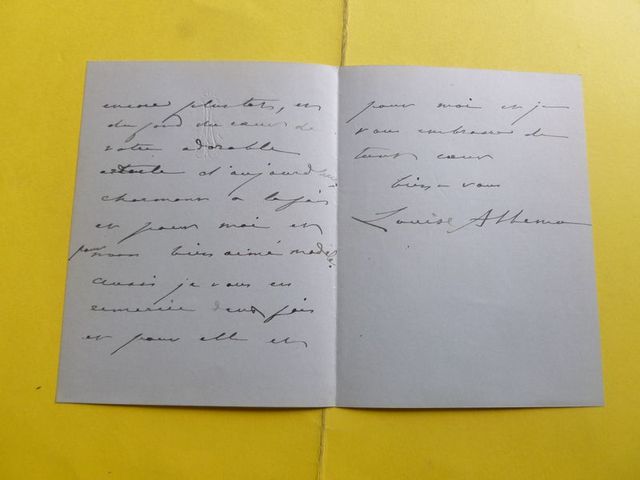 encore plus tôt, et
du fond du cœur de
votre adorable
article d'aujourd'hui
charmant à la fois
et pour moi et
pour mon bien aimé modèle
aussi je vous en
remercie deux fois
et pour elle et
pour moi et je
vous embrasse de
tout cœur
bien à vous
Louise Abbema